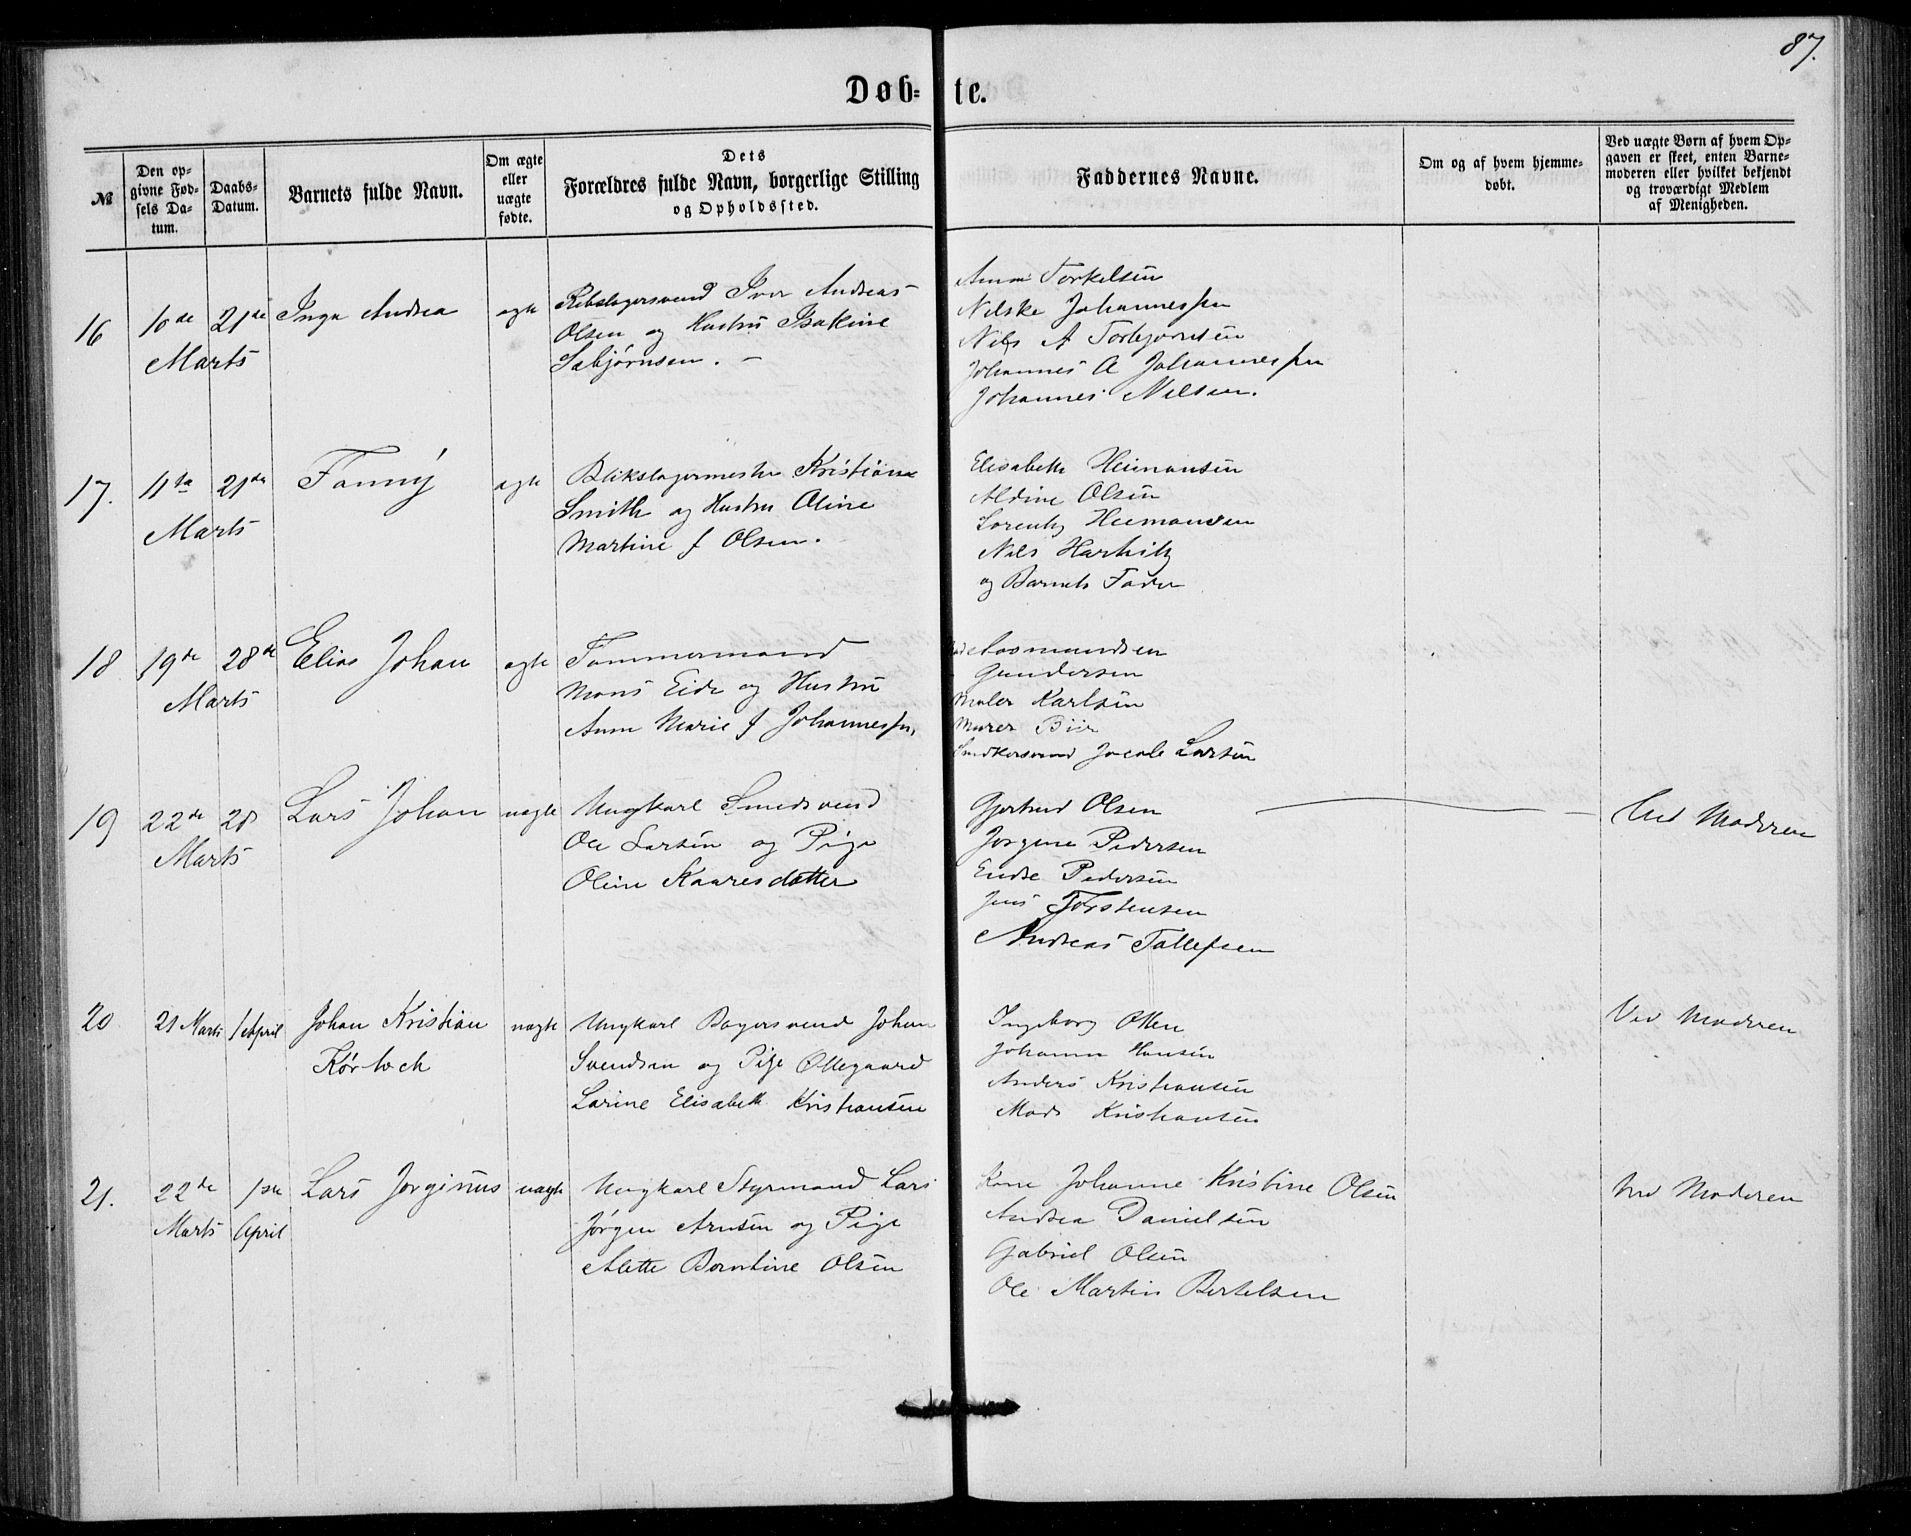 87.
Døb-te.
№
Den opgivne Fødsels Datum.
Daabs-Datum.
Barnets fulde Navn.
Om ægte eller uægte fødte.
Dets Forældres fulde Navn, borgerlige Stilling og Opholdssted.
Faddernes Navne.
Om og af hvem hjemmedøbt.
Ved uægte Børn af hvem Opgaven er skeet, enten Barnemoderen eller hvilket bekjendt og troværdigt Medlem af Menigheden.
16
10de Marts
21de
Inga Andrea
ægte
Rebslagersvend Iver Andreas
Olsen og Hustru Isakine
Sæbjørnsen. -
Anna Torkelsen
Nilske Johannessen
Nils A Torbjørnsen
Johannes A Johannessen
Johannes Nilsen.
17.
11te Marts
21de
Fanny
ægte
Blikslagermester Kristian
Smith og Hustru Oline
Martine f Olsen.
Elisabeth Heimansen
Aldine Olsen
Lorentz Heimansen
Nils Hartvig
og Barnets Fader
18
19de Marts
28de
Elias Johan
ægte
Tømmermand
Mons Eide og Hustru
Anne Marie f Johannessen,
Aasmundsen
Gundersen
Maler Karlsen
Murer
Snedkersvend Jacob Larsen
19
22de Marts
28
Lars Johan
uægte
Ungkarl Smedsvend
Ole Larsen og Pige
Oline Kaaresdatter
Gjertrud Olsen
Jørgine Pedersen
Endre Pedersen
Jens Torstensen
Andreas Tollefsen
Ved Moderen
20
21 Marts
1 April
Johan Kristian
uægte
Ungkarl Bagersvend Johan
Svendsen og Pige Ollegaard
Larine Elisabeth Kristiansen
Ingeborg Olsen
Johanne Hansen
Anders Kristiansen
Mads Kristiansen
Ved Moderen
21.
22de Marts
1ste April
Lars Jørginus
uægte
Ungkarl Styrmand Lars
Jørgen Arnsen og Pige
Alette Berntine Olsen
Kone Johanne Kristine Olsen
Andrea Danielsen
Gabriel Olsen
Ole Martin Bertelsen
Ved Moderen